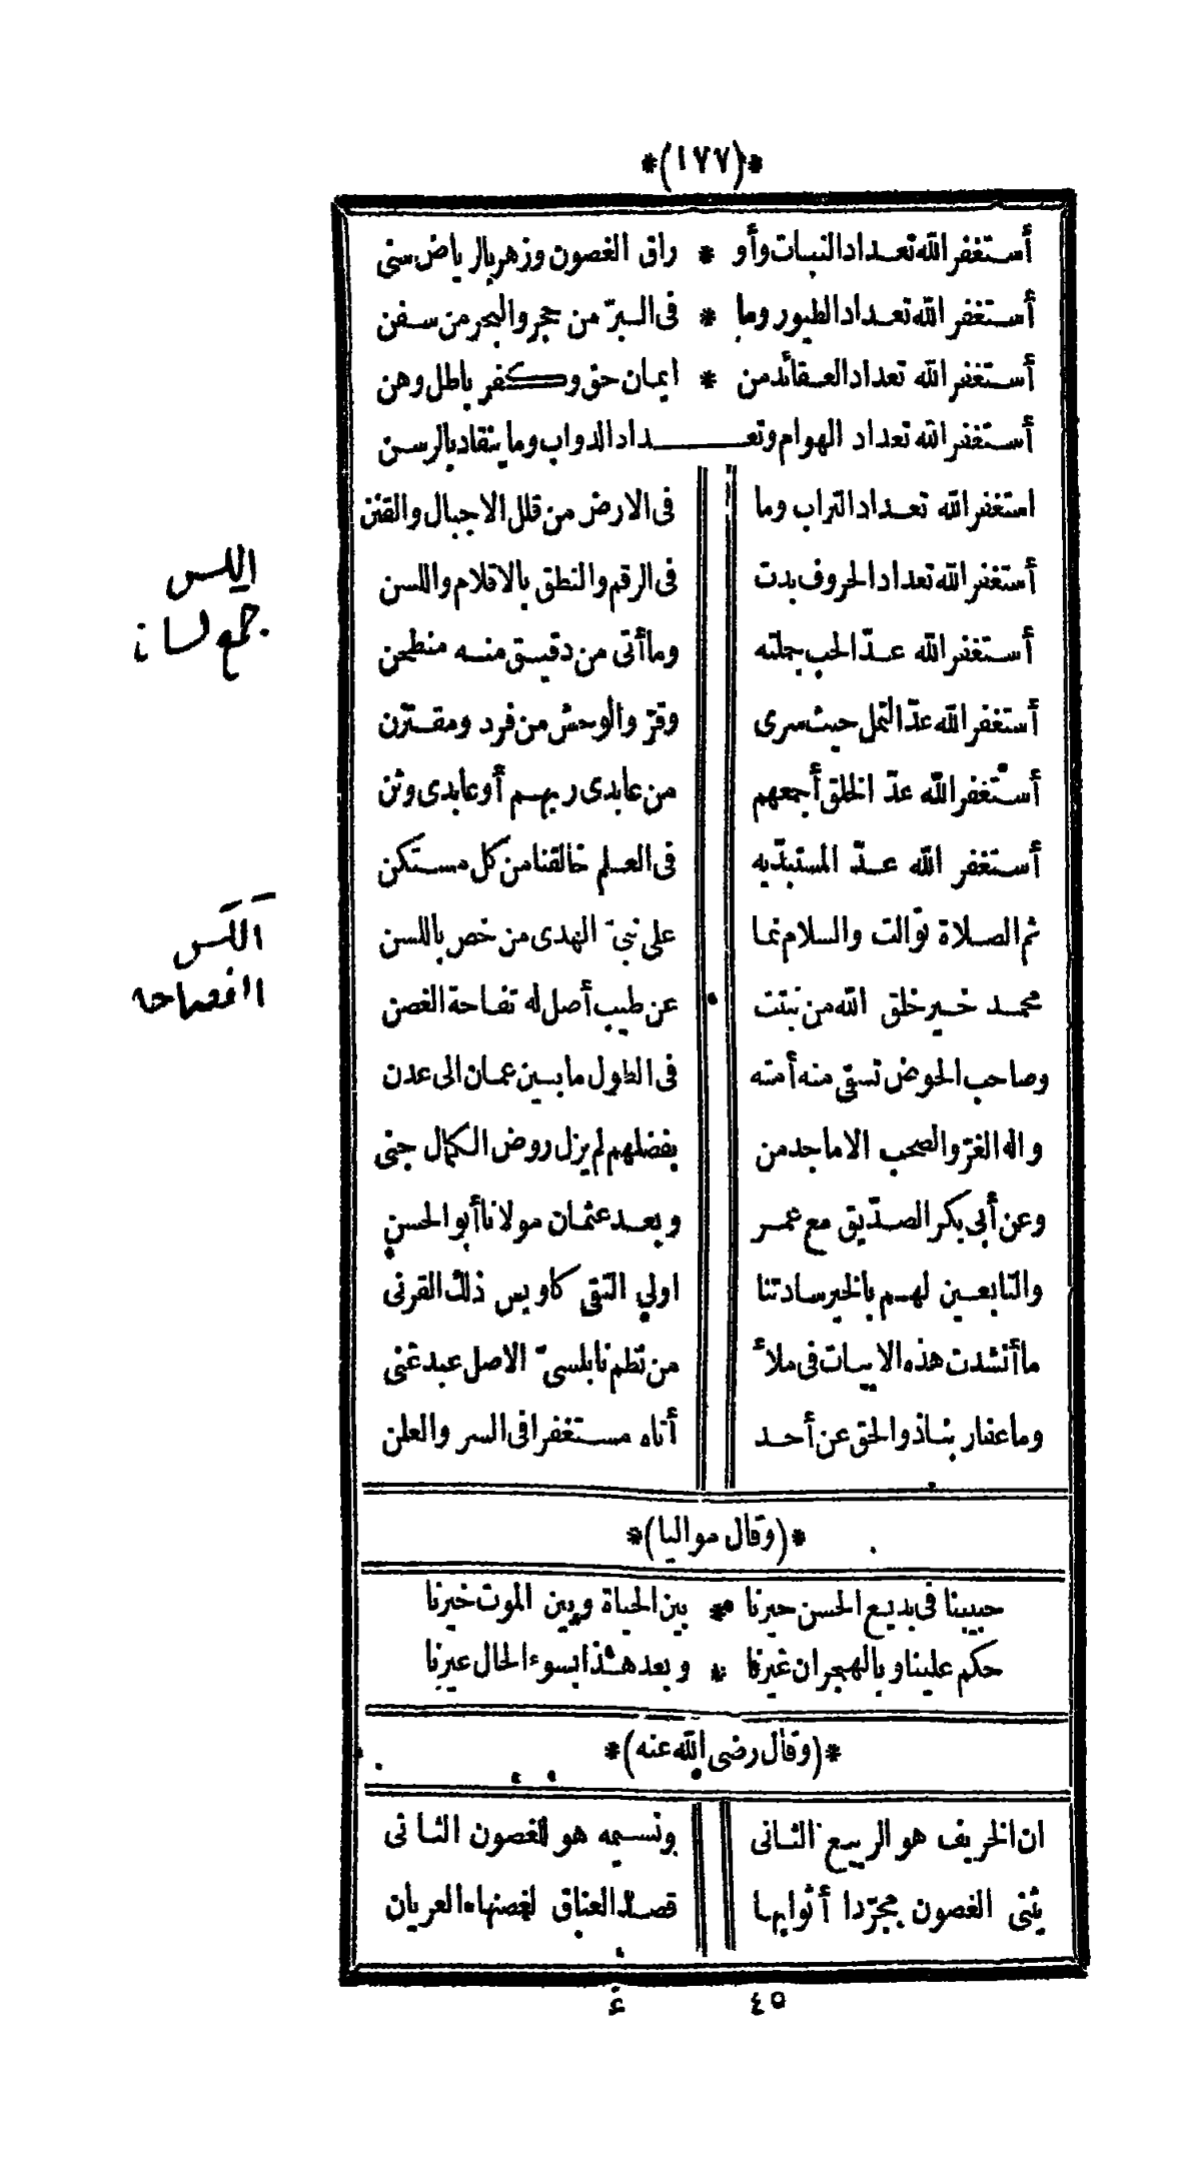 *(١٧٧)*
أستغفر الله تعداد النبات وأو * راق الغصون وزهر بالرياض سنى
أستغفر الله تعداد الطيور وما * فى البرّ من حجر والبحر من سفن
أستغفر الله تعداد العقائد من * ايمان حق وكفر باطل وهن
أستغفر الله تعداد الهوام وتعداد الدواب وما ينقاد بالرسن
استغفر الله تعداد التراب وما فى الارض من قلل الاجبال والقنن
أستغفر الله تعداد الحروف بدت فى الرقم والنطق بالاقلام واللسن
أستغفر الله عدّ الحب جملته وما أتى من دقيق منه منطحن
أستغفر الله عدّ النمل حيث سرى وقرّ والوحش من فرد ومقترن
أستغفر الله عدّ الخلق أجمعهم من عابدى ربهم أو عابدى وثن
أستغفر الله عدّ المستبدّ به فى العلم خالقنا من كل مستكن
ثم الصلاة توالت والسلام نما على نبىّ الهدى من خص باللسن
محمد خير خلق الله من نبتت عن طيب أصل له تفاحة الغصن
وصاحب الحوض تسقى منه أمته فى الطول ما بين عمان الى عدن
واله الغرّ والصحب الاماجد من بفضلهم لم يزل روض الكمال جنى
وعن أبى بكر الصدّيق مع عمر وبعد عثمان مولانا أبو الحسن
والتابعين لهم بالخير سادتنا اولي التقى كاويس ذلك القرنى
ما أنشدت هذه الابيات فى ملاء من نظم نابلسىّ الاصل عبد غنى
وما عفا ربنا ذو الحق عن أحد أتاه مستغفرا فى السر والعلن
اللسن
جمع لسان
اللَّسَن
الفصاحه
*(وقال مواليا)*
حبيبنا فى بديع الحسن حيرنا * بين الحياة وبين الموت خيرنا
حكم علينا وبالهجران غيرنا * وبعد هذا بسوء الحال عيرنا
*(وقال رضى الله عنه)*
ان الخريف هو الربيع الثانى ونسيمه هو للغصون الثانى
يثنى الغصون مجرّدا أثوابها قصد العناق لغصنها العريان
٤٥ غ